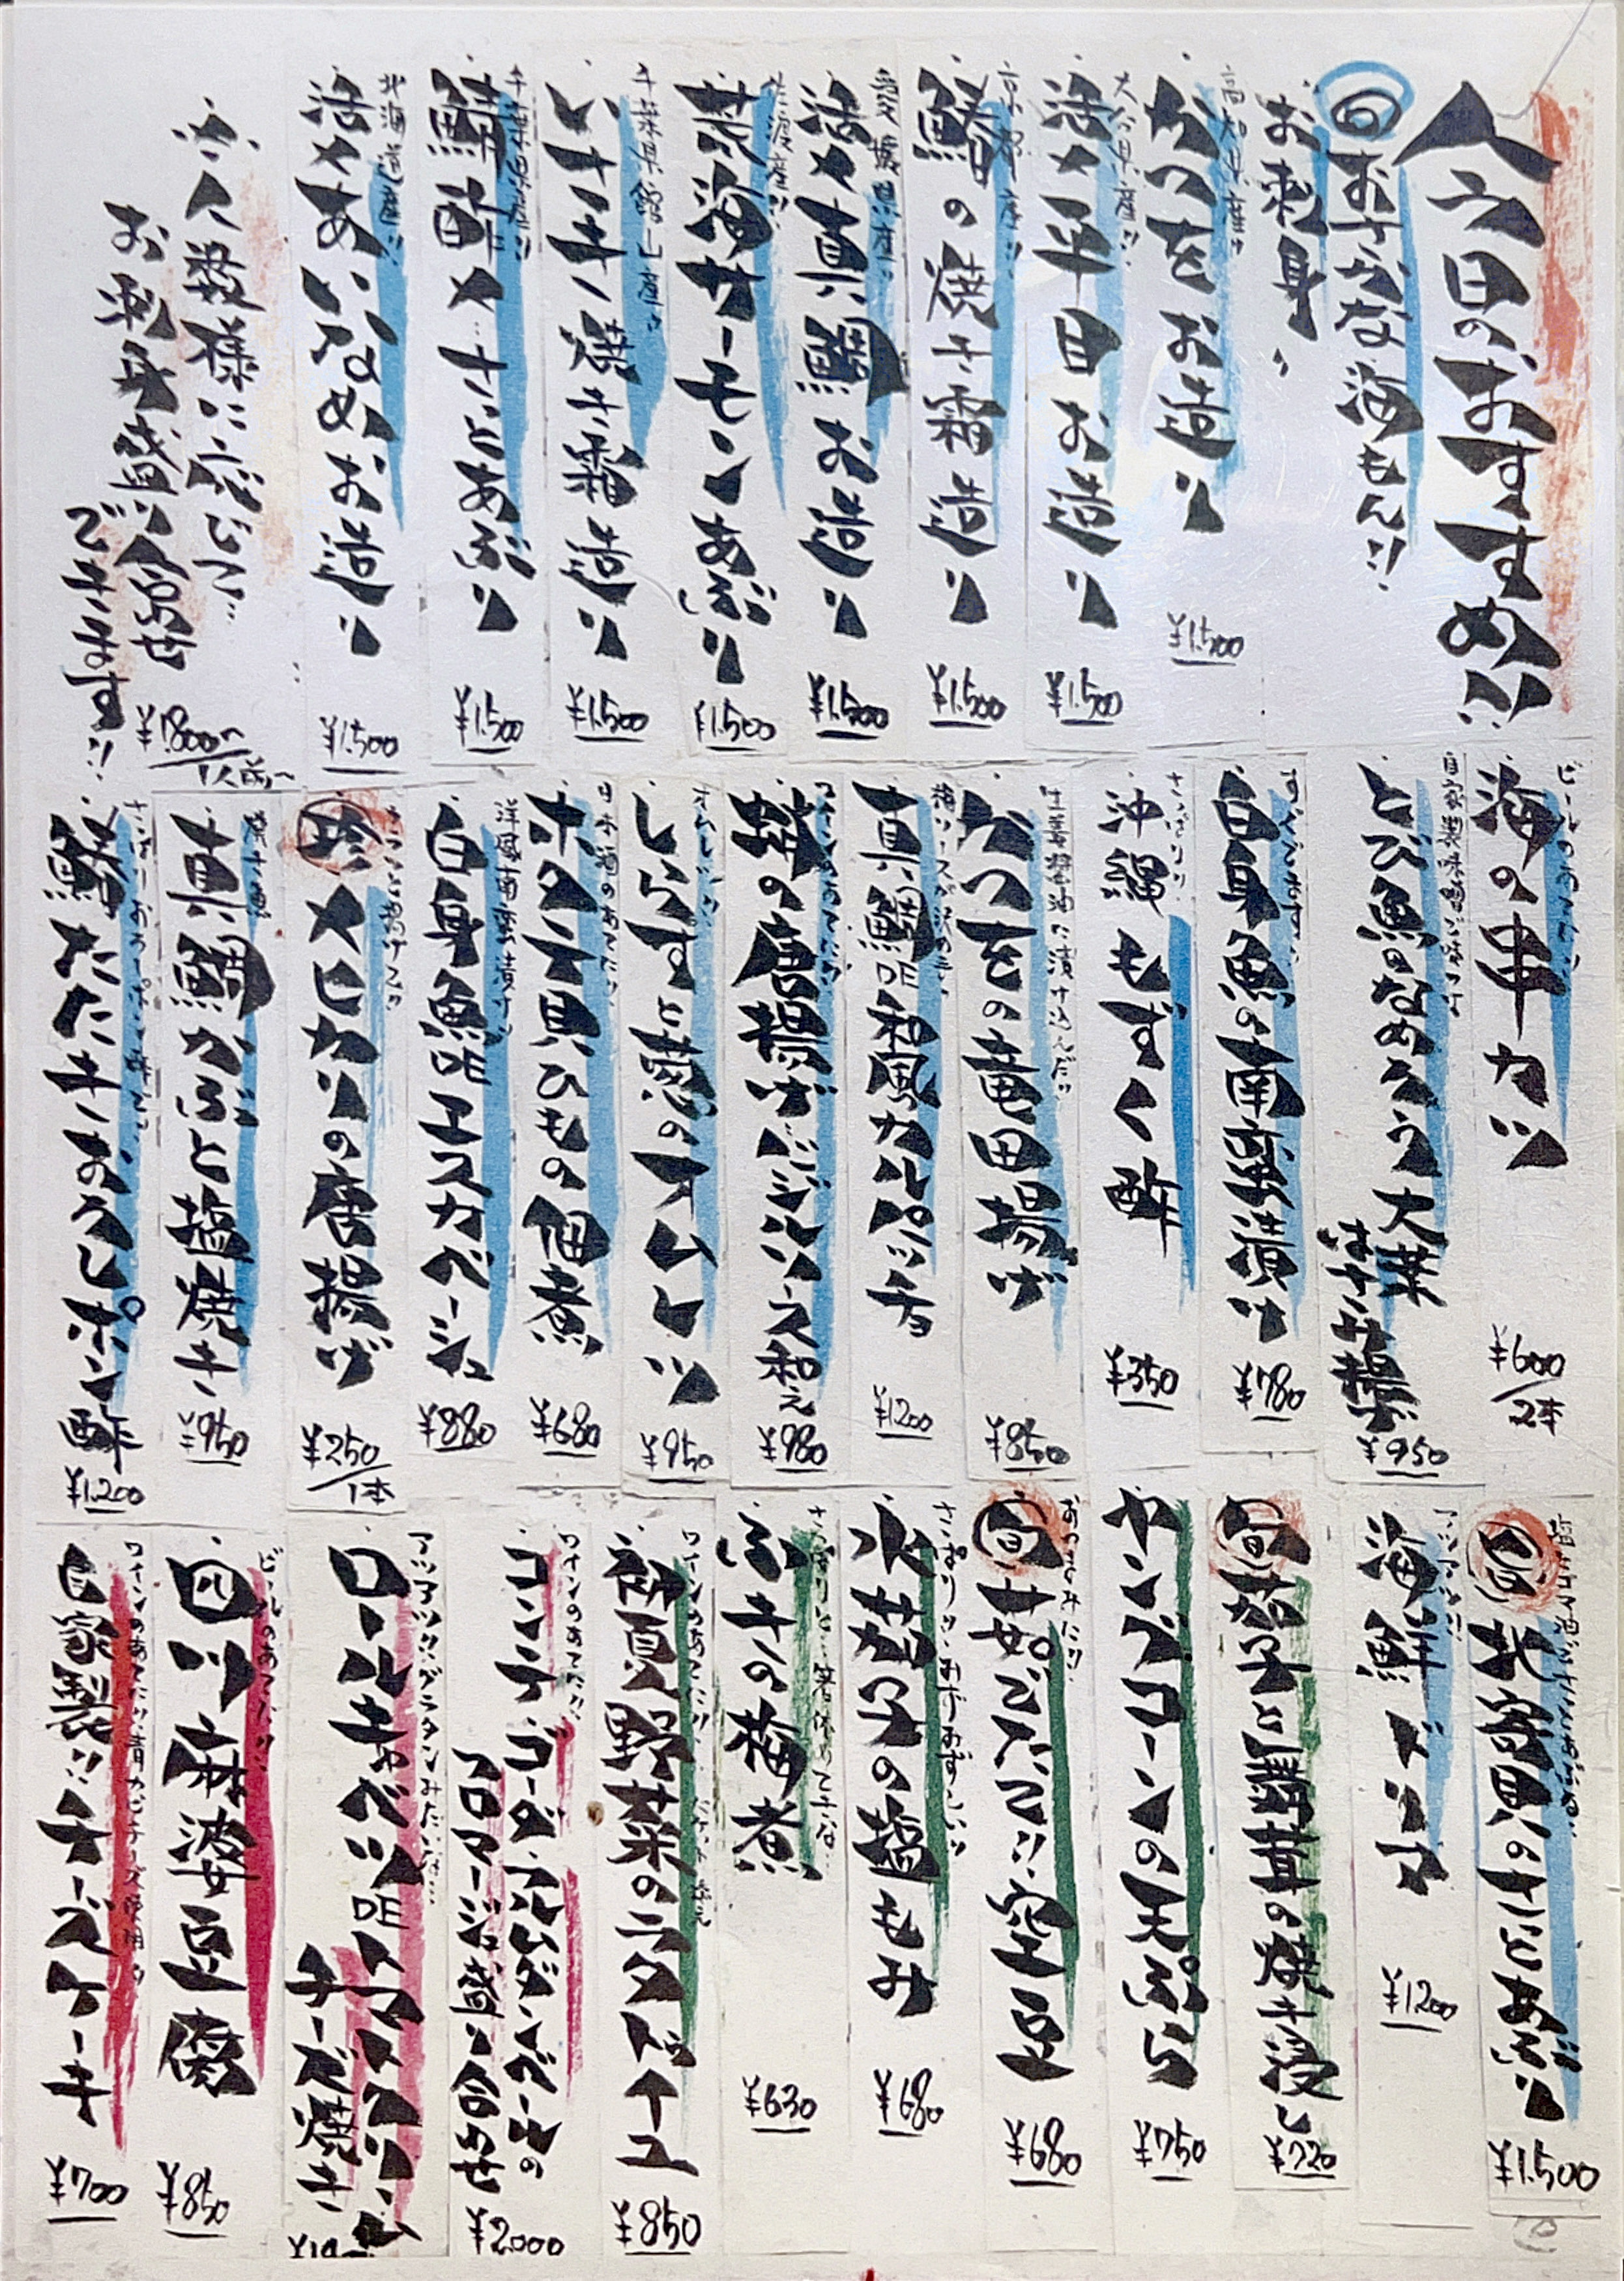 今日のおすすめ!!
回 おさかな海もん!!
お刺身
高知県産!!
かつをお造り
¥1.500
大分県産!!
活〆平目お造り
¥1.500
京都産!!
鰆の焼き霜造り
¥1.500
愛媛県産!!
活〆真鯛お造り
¥1.500
佐渡産!!
荒海サーモンあぶり
¥1.500
千葉県館山産!!
いサキノ焼き霜造り
¥1.500
千葉県産!!
鯖酢〆…さとあぶり
¥1.500
北海道産!!
活〆あいなめお造り
¥1.500
人数様に応じて…
お刺身盛り合わせ
できます!!
¥1.800〜/1人前〜
ビールのあてに!!
海の串カツ
¥600/2本
自家製味噌で味つけ
とび魚のなめろう大葉
はさみ揚げ
¥950
白身魚の南蛮漬け
¥780
さっぱり!!
沖縄もずく酢
¥350
生姜醤油に漬け込んだ!!
かつをの竜田揚げ
¥850
真鯛DE和風カルパッチョ
¥1200
ワインのあてに!!
蛸の唐揚げバジルソース和え
¥980
オムレツ!!
しらすと葱のオムレツ
¥950
日本酒のあてに!!
ホタテ貝ひもの佃煮
¥680
洋風南蛮漬け!!
白身魚DEエスカベーシュ
¥880
カラっと揚げて!!
珍 メヒカリの唐揚げ
¥250/1本
焼き魚
真鯛かぶと塩焼き
¥950
鰆たたきおろしポン酢
¥1.200
北寄貝のさとあぶり
¥1.500
アツアツ!!
海鮮ドリア
¥1200
旬 茄子と舞茸の焼き浸し
¥720
ヤングコーンの天ぷら
¥750
おつまみに!!
旬 茹でたて!!空豆
¥680
さっぱり!!みずみずしい!!
水茄子の塩もみ
¥680
さっぱりと…箸休めて十八番…
ふきの梅煮
¥630
初夏野菜のラタトゥイユ
¥850
ワインのあてに!!
コンテ、ゴーダ、カムダンベールの
フロマージュ盛り合わせ
¥2.000
アツアツ!!グラタンみたいな…
ロールキャベツDEトマトクリーム
チーズ焼き
ビールのあてに!!
四川麻婆豆腐
¥850
ワインのあてに!!青カビチーズ使用!!
自家製!!チーズケーキ
¥700